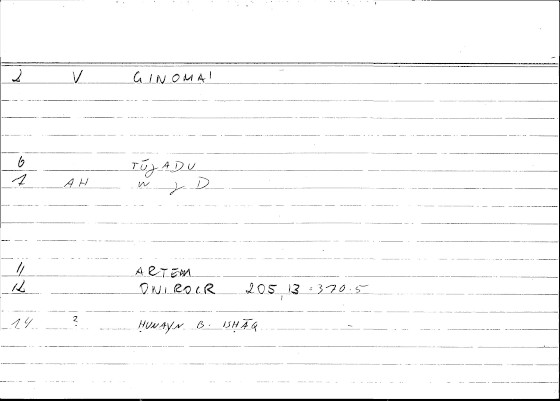 2 V GINOMAI
6 TŪJADU
7 AH W J D
11 ARTEM
12 ONIROCR 205,13 : 370.5
14 ? ḤUNAYN B. ISḤĀQ